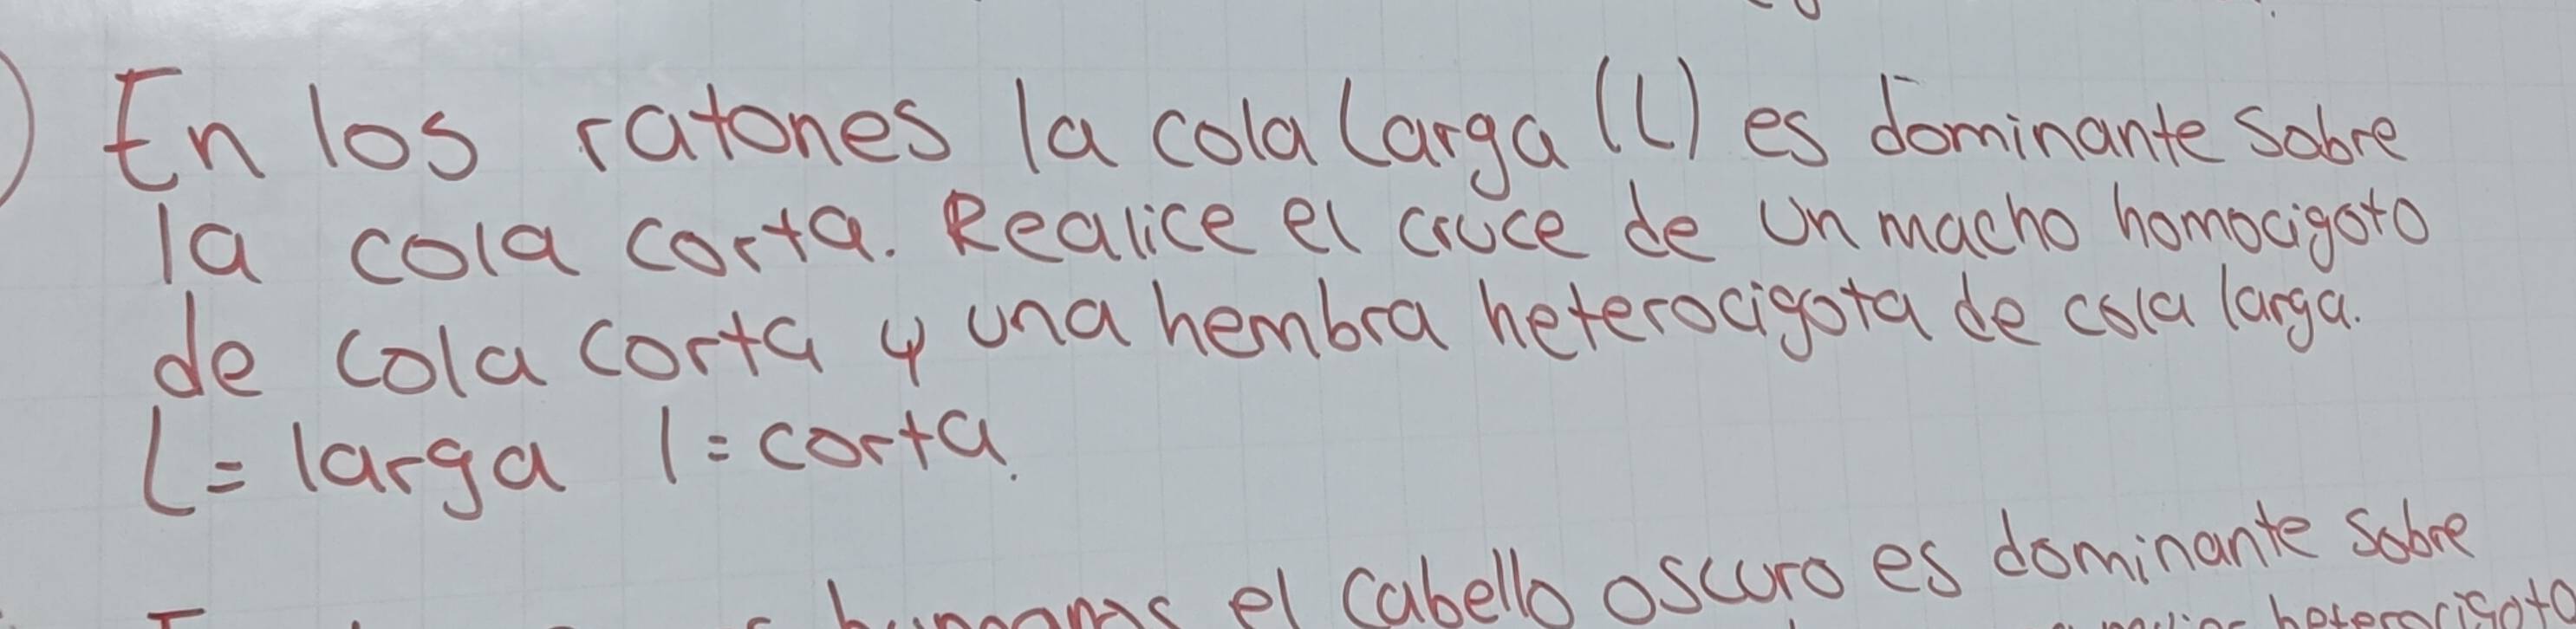 En los ratones la cola larga (L) es dominante sobre
la cola corta. Realice el cruce de un macho homocigoto
de cola corta y una hembra heterocigota de cola larga.
L= larga l=corta.
el cabello oscuro es dominante sobre
heterocigoto